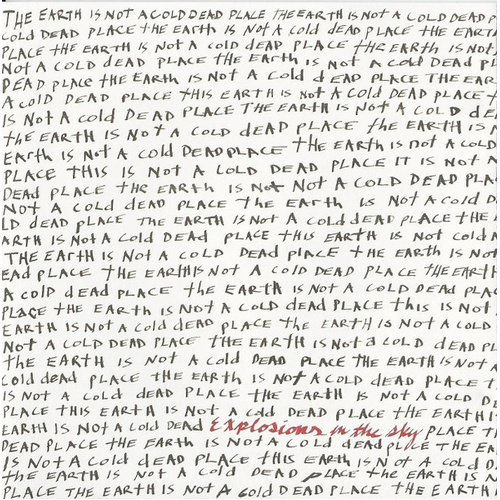 THE EARTH IS NOT A COLD DEAD PLACE THE EARTH IS NOT A COLD DEAD P
COLD DEAD PLACE THE EARTH IS NOT A COLD DEAD PLACE THE EARTH
PLACE THE EARTH IS NOT A COLD DEAD PLACE THE EARTH IS NOT
NOT A COLD DEAD PLACE THE EARTH IS NOT A COLD DEAD PL
DEAD PLACE THE EARTH IS NOT A COLD DEAD PLACE THE EAR
A COLD DEAD PLACE THIS EARTH IS NOT A COLD DEAD PLACE T
IS NOT A COLD DEAD PLACE THE EARTH IS NOT A COLD DE
THE EARTH IS NOT A COLD DEAD PLACE THE EARTH IS N
EARTH IS NOT A COLD DEAD PLACE THE EARTH IS NOT A COLD
PLACE THIS IS NOT A COLD DEAD PLACE IT IS NOT A
DEAD PLACE THE EARTH IS NOT NOT A COLD DEAD PLA
NOT A COLD DEAD PLACE THE EARTH IS NOT A COLD D
LD DEAD PLACE THE EARTH IS NOT A COLD DEAD PLACE THE
ARTH IS NOT A COLD DEAD PLACE THIS EARTH IS NOT COLD A
THE EARTH IS NOT A COLD DEAD PLACE THE EARTH IS NOT
EAD PLACE THE EARTH IS NOT A COLD DEAD PLACE THE EARTH
A COLD DEAD PLACE THE EARTH IS NOT A COLD DEAD PLAC
PLACE THE EARTH IS NOT A COLD DEAD PLACE THIS IS NOT
EARTH IS NOT A COLD DEAD PLACE THE EARTH IS NOT A COLD
NOT A COLD DEAD PLACE THE EARTH IS NOT A COLD DEAD PL
THE EARTH IS NOT A COLD DEAD PLACE THE EARTH IS NOT A
COLD DEAD PLACE THE EARTH IS NOT A COLD DEAD PLACE T
IS NOT A COLD DEAD PLACE THE EARTH IS NOT A COLD D
PLACE THIS EARTH IS NOT A COLD DEAD PLACE THE EARTH I
EARTH IS NOT A COLD DEAD Explosions in the sky PLACE T
DEAD PLACE THE EARTH IS NOT A COLD DEAD PLACE THE EA
IS NOT A COLD DEAD PLACE THIS EARTH IS NOT A COLD D
THE EARTH IS NOT A COLD DEAD PLACE THE EARTH IS N
PLACE THE EARTH IS NOT A COLD DEAD PLACE THE EARTH